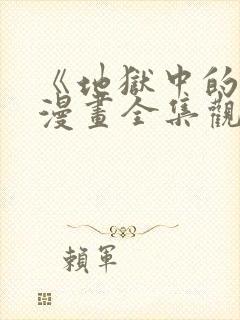 《地獄中的
漫畫全集觀
賴軍